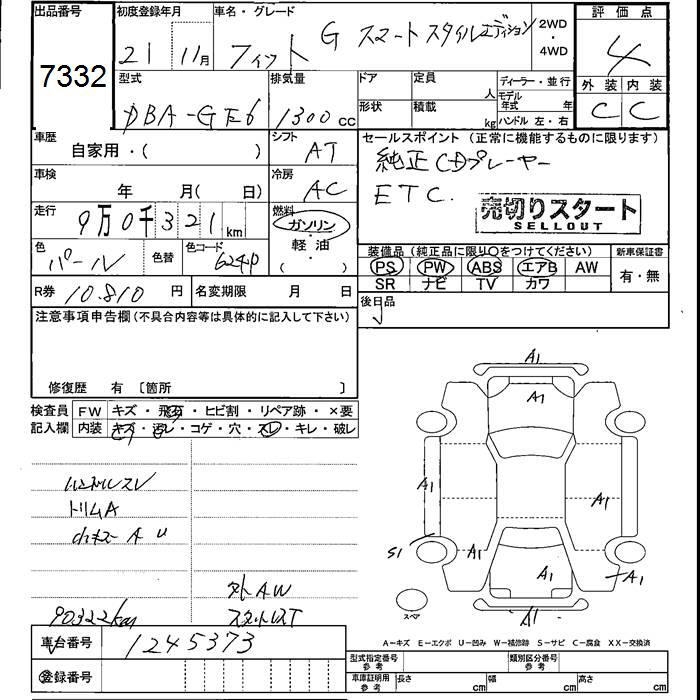 出品番号 初度登録年月 車名・グレード 2WD・4WD 評価点
7332 21 11月 フィット G スマートスタイルエディション 4
型式 排気量 ドア 定員 人 ディーラー・並行 外装 内装
DBA-GE6 1300cc 形状 積載 kg モデル年式 年 ハンドル 左・右 C C
車歴 自家用・( ) シフト AT セールスポイント (正常に機能するものに限ります)
純正CDプレーヤー
車検 年 月( 日) 冷房 AC ETC.
売切りスタート
SELLOUT
走行 9万0千321km 燃料 ガソリン・軽油・( )
色 パール 色替 色コード 624P
装備品 (純正品に限り○をつけてください) 新車保証書
PS PW ABS エアB AW 有・無
SR ナビ TV カワ
R券 10.810円 名変期限 月 日 後日品
注意事項申告欄 (不具合内容等は具体的に記入して下さい)
修復歴 有 [箇所 ]
検査員記入欄 FW キズ・飛石・ヒビ割・リペア跡・×要
内装 キズ・汚レ・コゲ・穴・スレ・キレ・破レ
ハンドルスレ
トリムA
A U
外AW
90322km
スタットレスT
A1
A1
A1 A1 A1
S1 A1 A1 A1
A1
スペア
A-キズ E-エクボ U-凹み W-補修跡 S-サビ C-腐食 XX-交換済
車台番号 1245373
登録番号
型式指定番号 参考 類別区分番号 参考
車庫証明用 参考 長さ cm 幅 cm 高さ cm